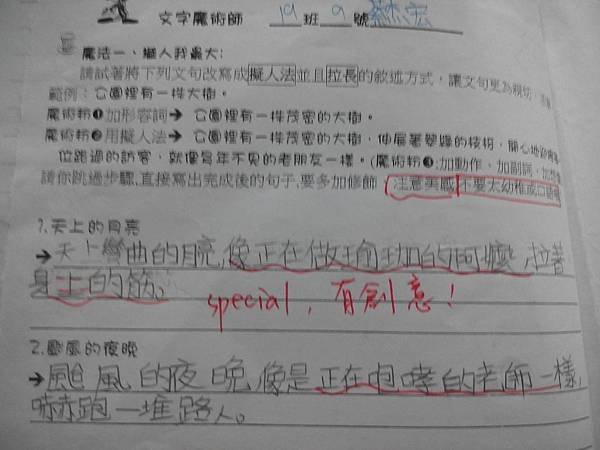 文字魔術師 19班 9號
魔法一、擬人我最大:
請試著將下列文句改寫成擬人法並且拉長的敘述方式，讓文句更為親切、
範例：公園裡有一棵大樹。
魔術粉❶加形容詞→ 公園裡有一棵茂密的大樹。
魔術粉❷用擬人法→ 公園裡有一棵茂密的大樹，伸展著翠綠的枝枒，開心地迎接
位跳過的訪客，就像多年不見的老朋友一樣。(魔術粉❸:加動作、加副詞、加
請你跳過步驟,直接寫出完成後的句子,要多加修飾，注意美感 不要太幼稚或口語
1.天上的月亮
→天上彎曲的月亮,像正在做瑜珈的阿嬤,拉著
身上的筋。
special，有創意！
2.颱風的夜晚
→颱風的夜晚,像是正在咆哮的老師一樣,
嚇跑一堆路人。